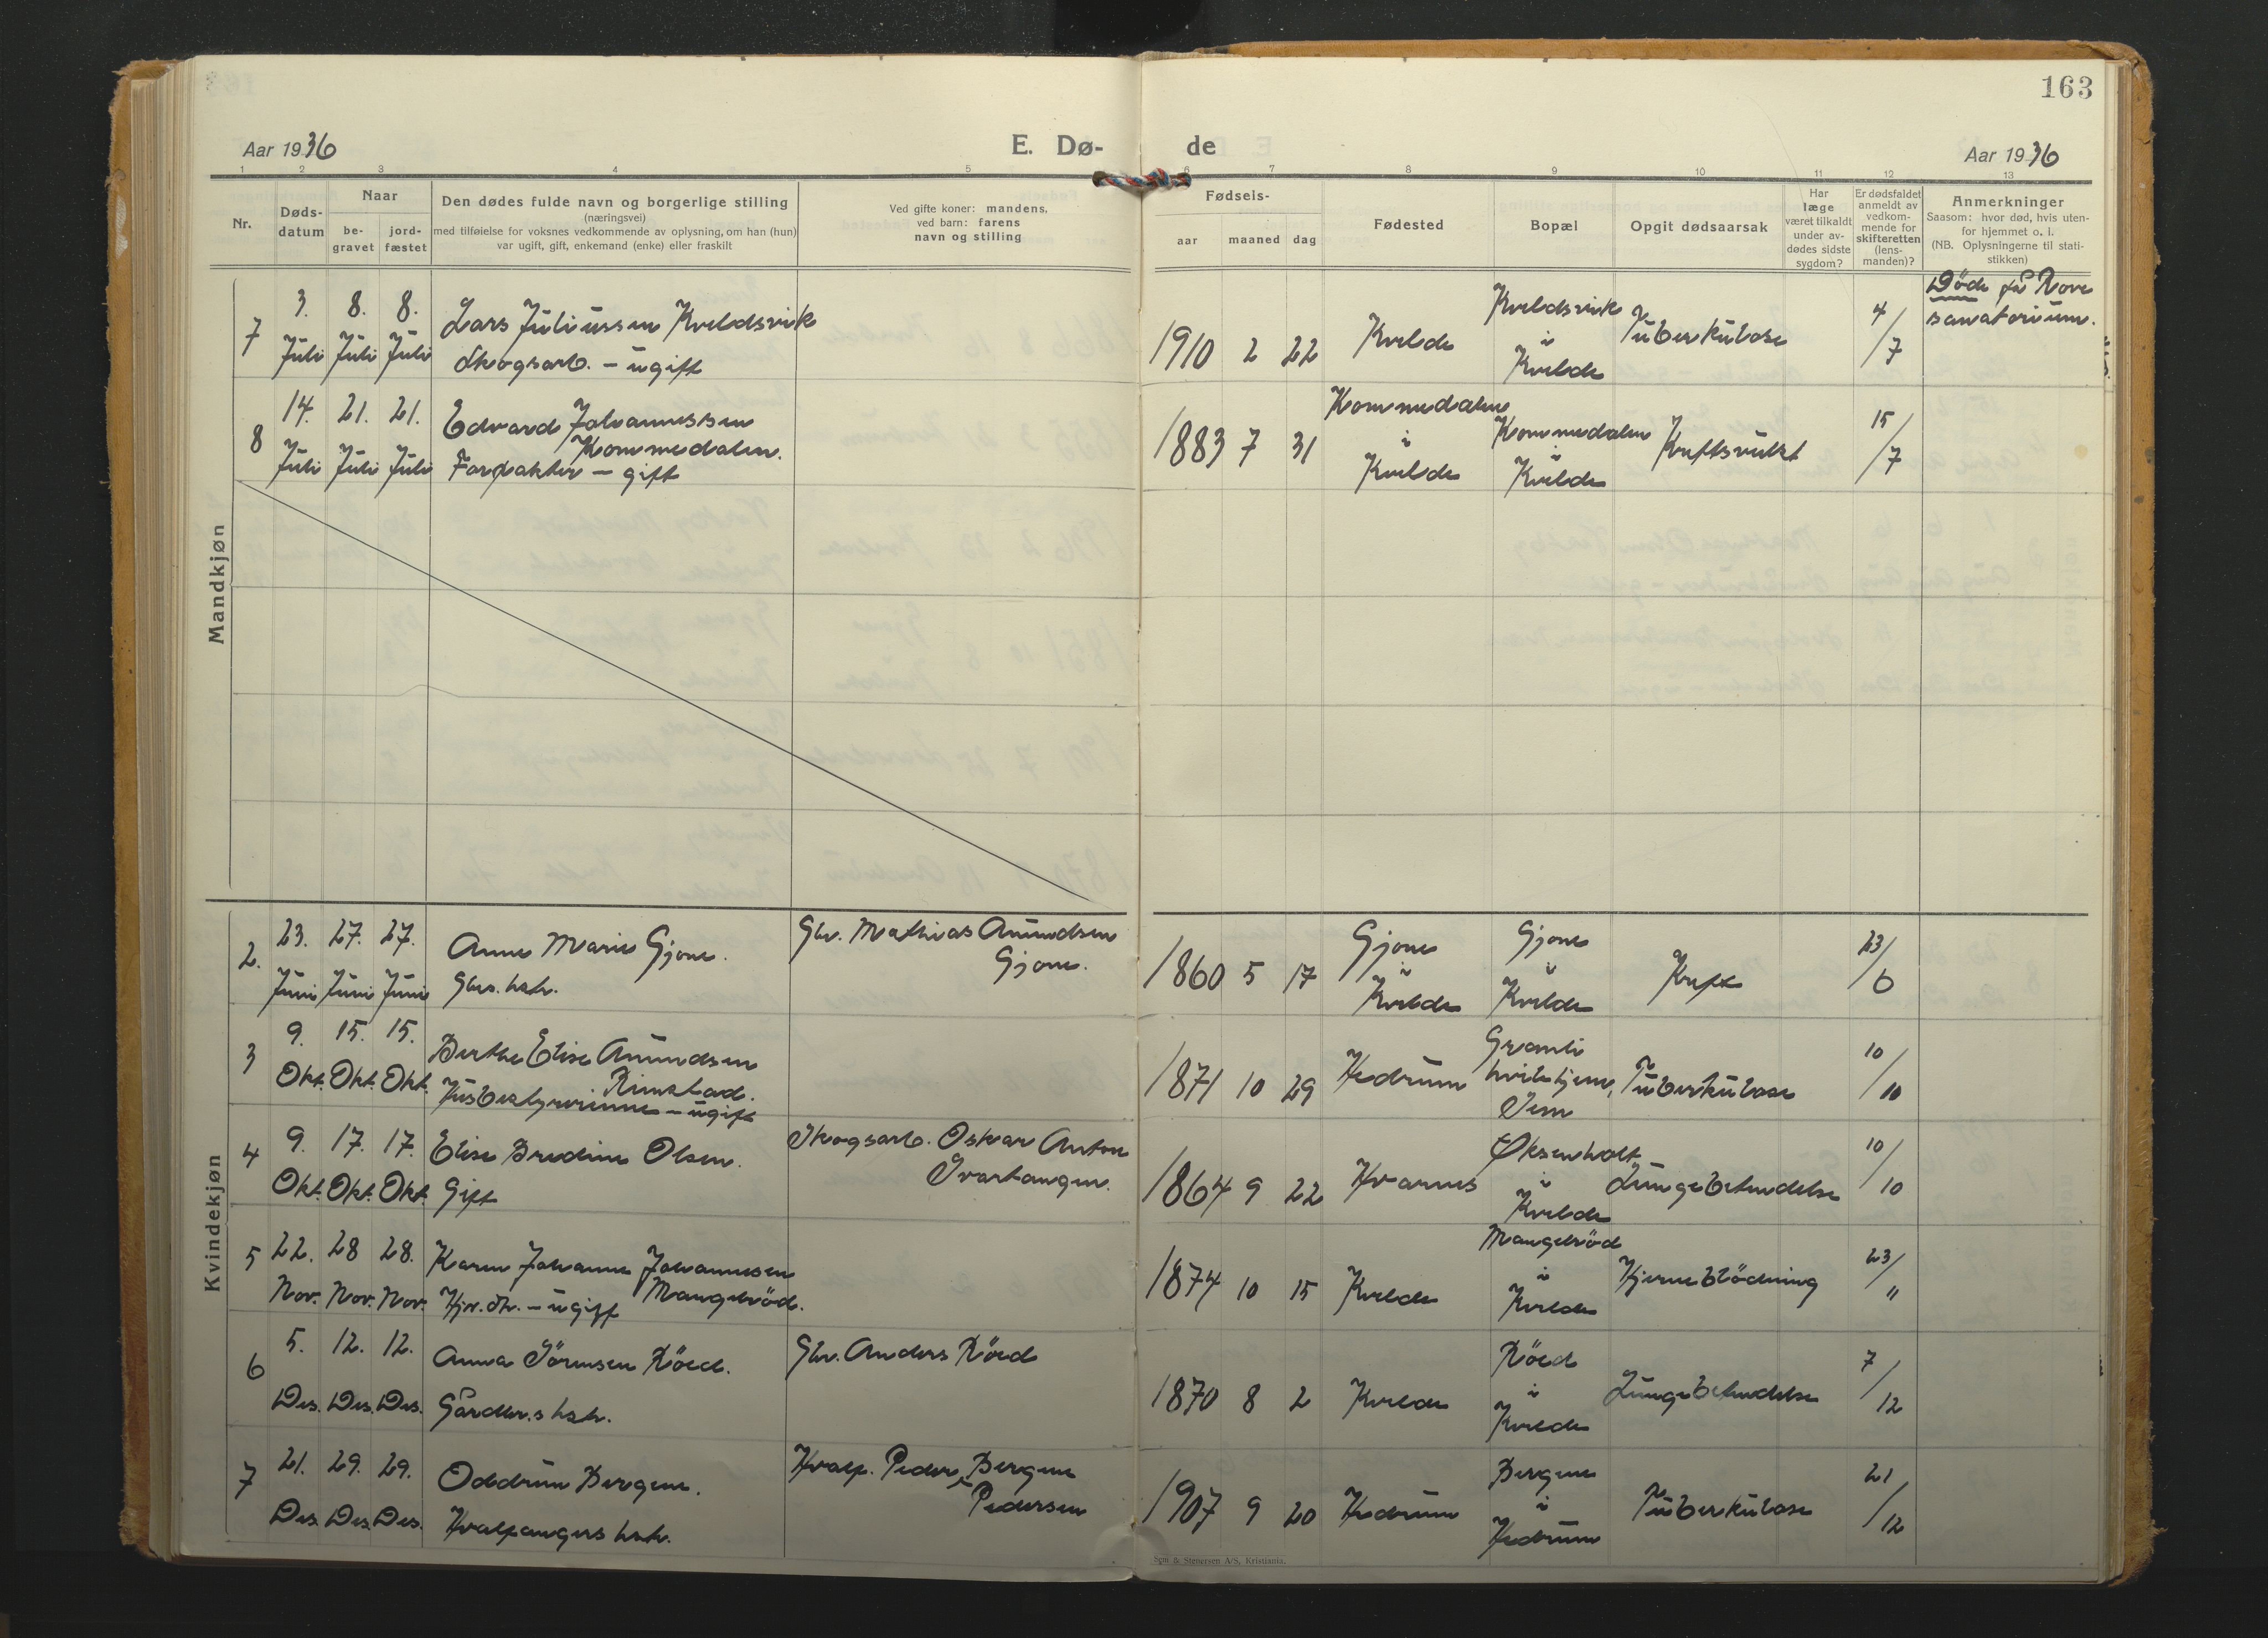 163
Aar 1936
E. Dø-
de
Aar 1936
1 2 3 4 5 6 7 8 9 10 11 12 13
Nr.
Døds-
datum
Naar
be-
gravet
jord-
fæstet
Den dødes fulde navn og borgerlige stilling
(næringsvei)
med tilføielse for voksnes vedkommende av oplysning, om han (hun)
var ugift, gift, enkemand (enke) eller fraskilt
Ved gifte koner: mandens,
ved barn: farens
navn og stilling
Fødsels-
aar maaned dag
Fødested
Bopæl
Opgit dødsaarsak
Har
læge
været tilkaldt
under av-
dødes sidste
sygdom?
Er dødsfaldet
anmeldt av
vedkom-
mende for
skifteretten
(lens-
manden)?
Anmerkninger
Saasom: hvor død, hvis uten-
for hjemmet o. l.
(NB. Oplysningerne til stati-
stikken)
Mandkjøn
7
3. 8. 8.
Juli Juli Juli
Lars Juliussen Kveldsvik
Skogsarb. – ugift
1910 2 22
Kvelde
Kveldsvik
i
Kvelde
Tuberkulose
4/7
Döde på Rove
sanatorium.
8
14. 21. 21.
Juli Juli Juli
Edvard Johannessen
Kommedalen.
Forpakter – gift
1883 7 31
Kommedalen
i
Kvelde
Kommedalen
i
Kvelde
Kreftsvulst
15/7
Kvindekjøn
2.
23. 27. 27.
Juni Juni Juni
Anne Marie Gjone.
Gbr. hstr.
Gbr. Mathias Amundsen
Gjone.
1860 5 17
Gjone
i
Kvelde
Gjone
i
Kvelde
Kreft
23/6
3
9. 15. 15.
Okt. Okt. Okt.
Berthe Elise Amundsen
Rimstad.
Husbestyrerinne – ugift
1871 10 29
Hedrum
Gramli
hvilehjem,
Tuberkulose
10/10
4
9. 17. 17.
Okt. Okt. Okt.
Elise Bredine Olsen.
Gift
Skogsarb. Oskar Anton
Svartangen.
1864 9 22
Hvarnes
Øksenholt
i
Kvelde
Lungebetendelse
10/10
5
22. 28 28.
Nov. Nov. Nov.
Karen Johanne Johannesen
Mangelröd.
Hjv. dtr. – ugift
1874 10 15
Kvelde
Mangelröd
i
Kvelde
Hjerneblödning
23/"
6
5. 12. 12.
Des. Des. Des.
Anna Sörensen Röed.
Gårdbr.s hstr.
Gbr. Anders Röed
1870 8 2
Kvelde
Röed
i
Kvelde
Lungebetendelse
7/12
7
21. 29. 29.
Des. Des. Des.
Oddrun Bergene.
Hvalfangers hstr.
Hvalf. Peder Bergene
Pedersen
1907 9 20
Hedrum
Bergene
i
Hedrum
Tuberkulose
21/12
Stenersen A/S, Kristiania.